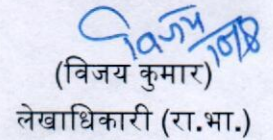 विजय
10/8
(विजय कुमार)
लेखाधिकारी (रा.भा.)